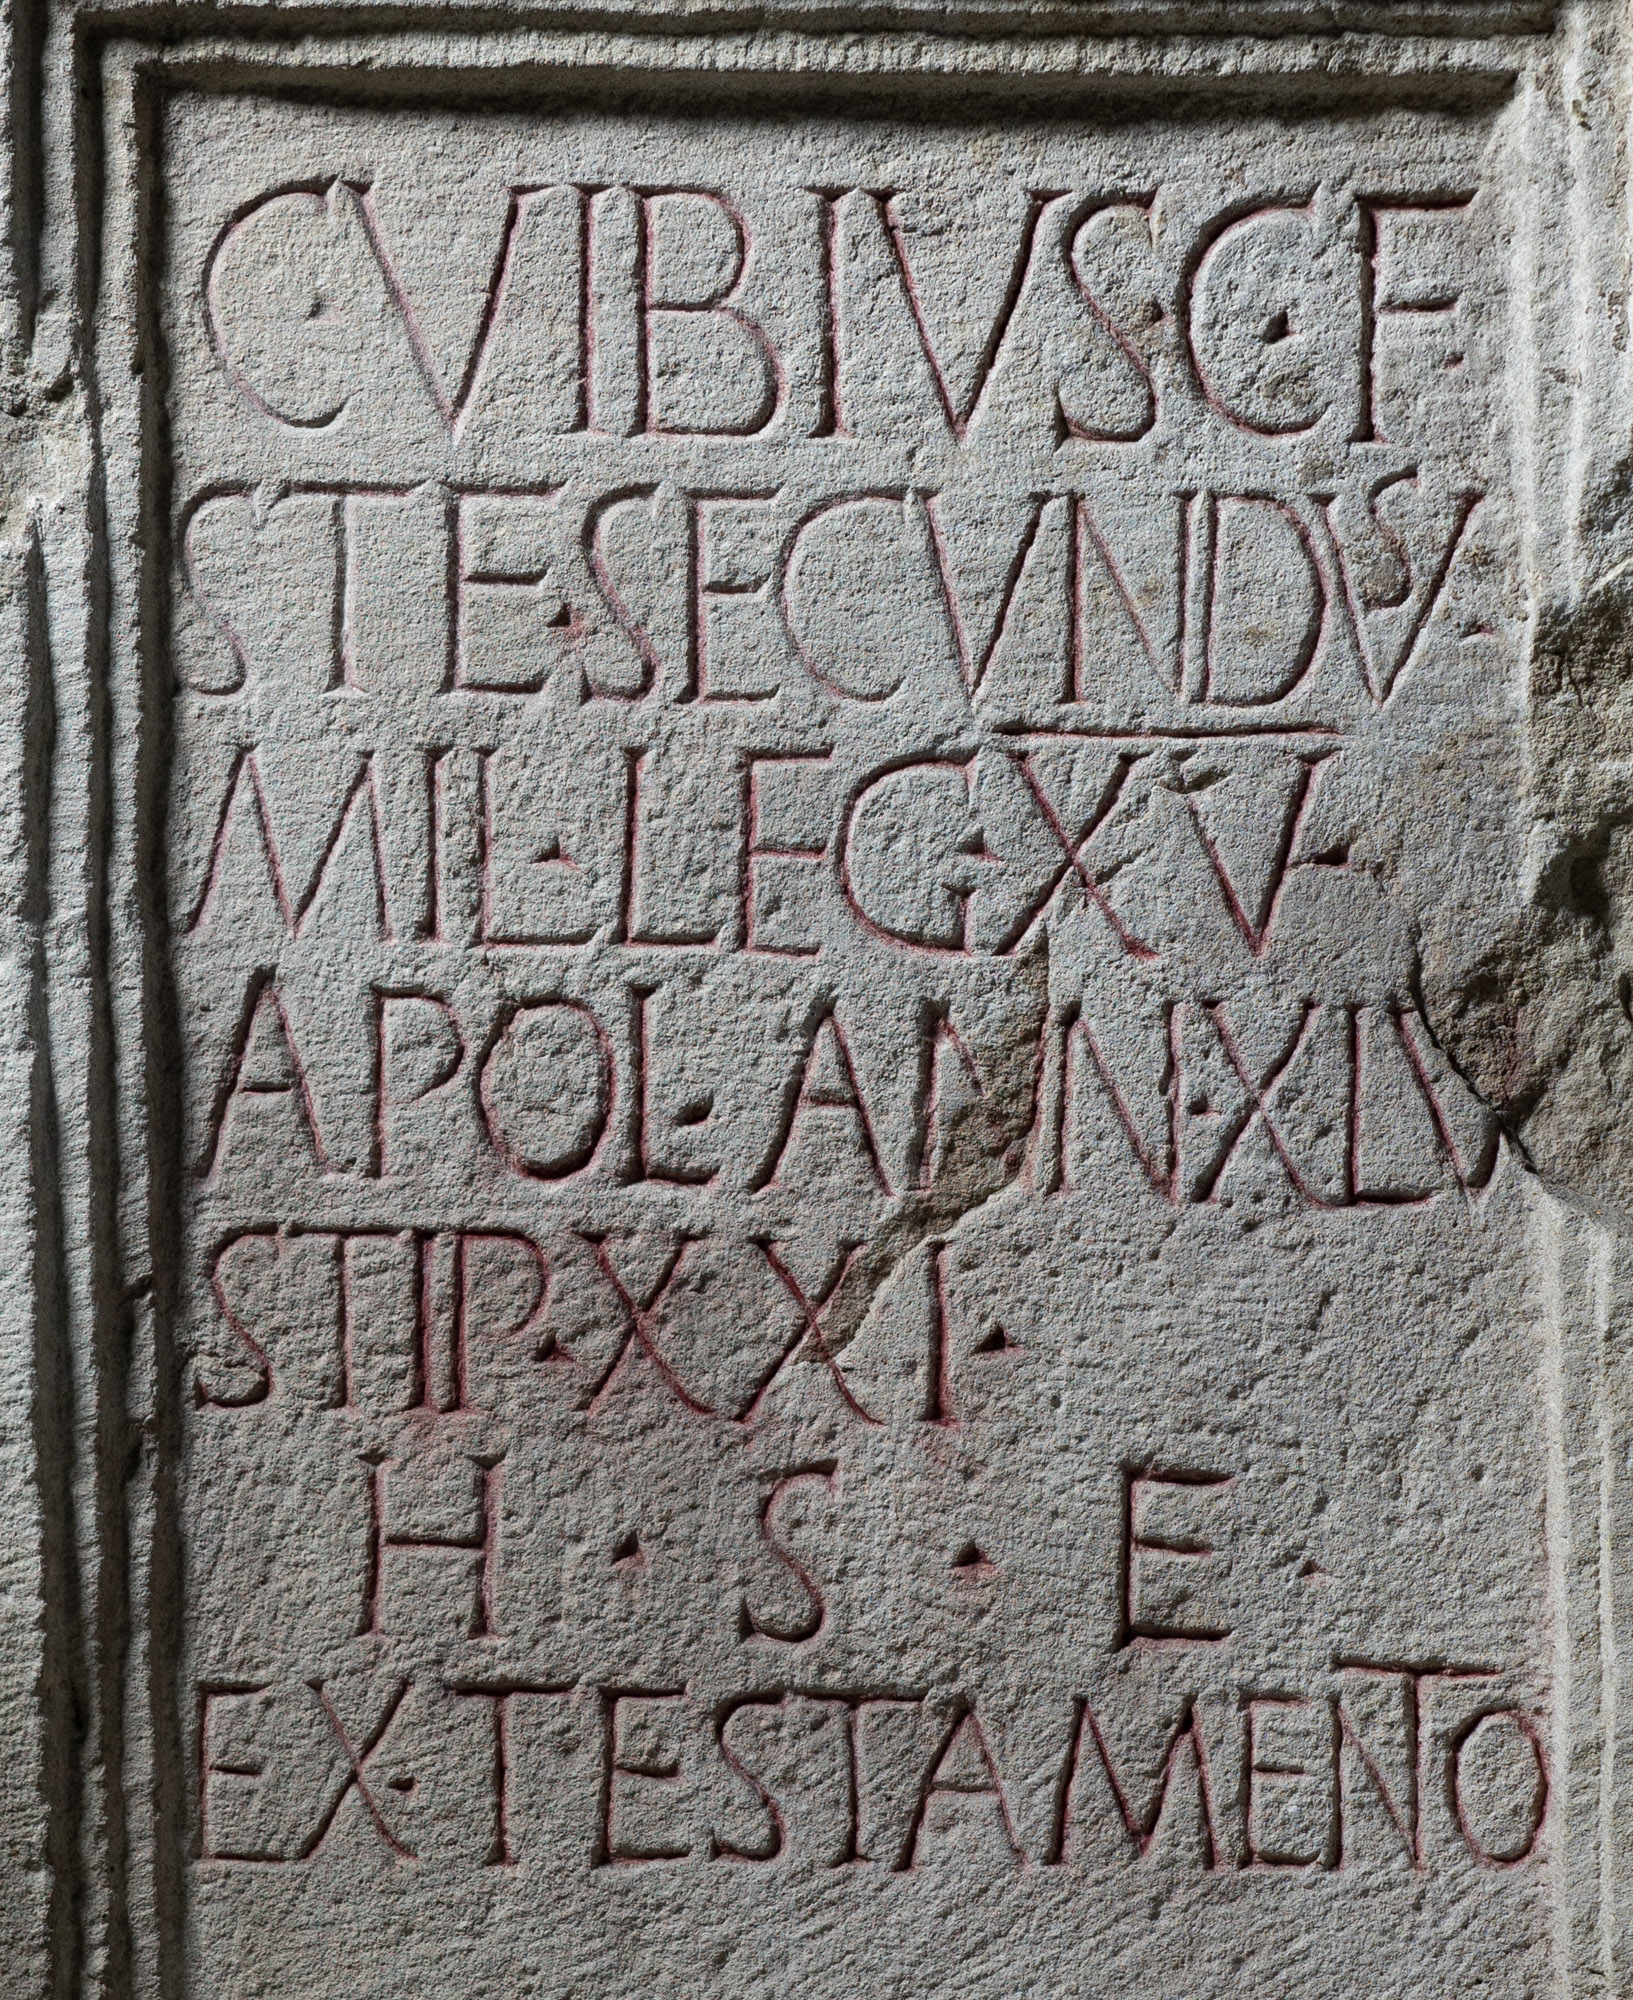 C·VIBIVS·C·F·
STE·SECVNDVS·
MIL·LEG·XV·
APOL·ANN·XLV
STIP·XXI·
H·S·E·
EX·TESTAMENTO